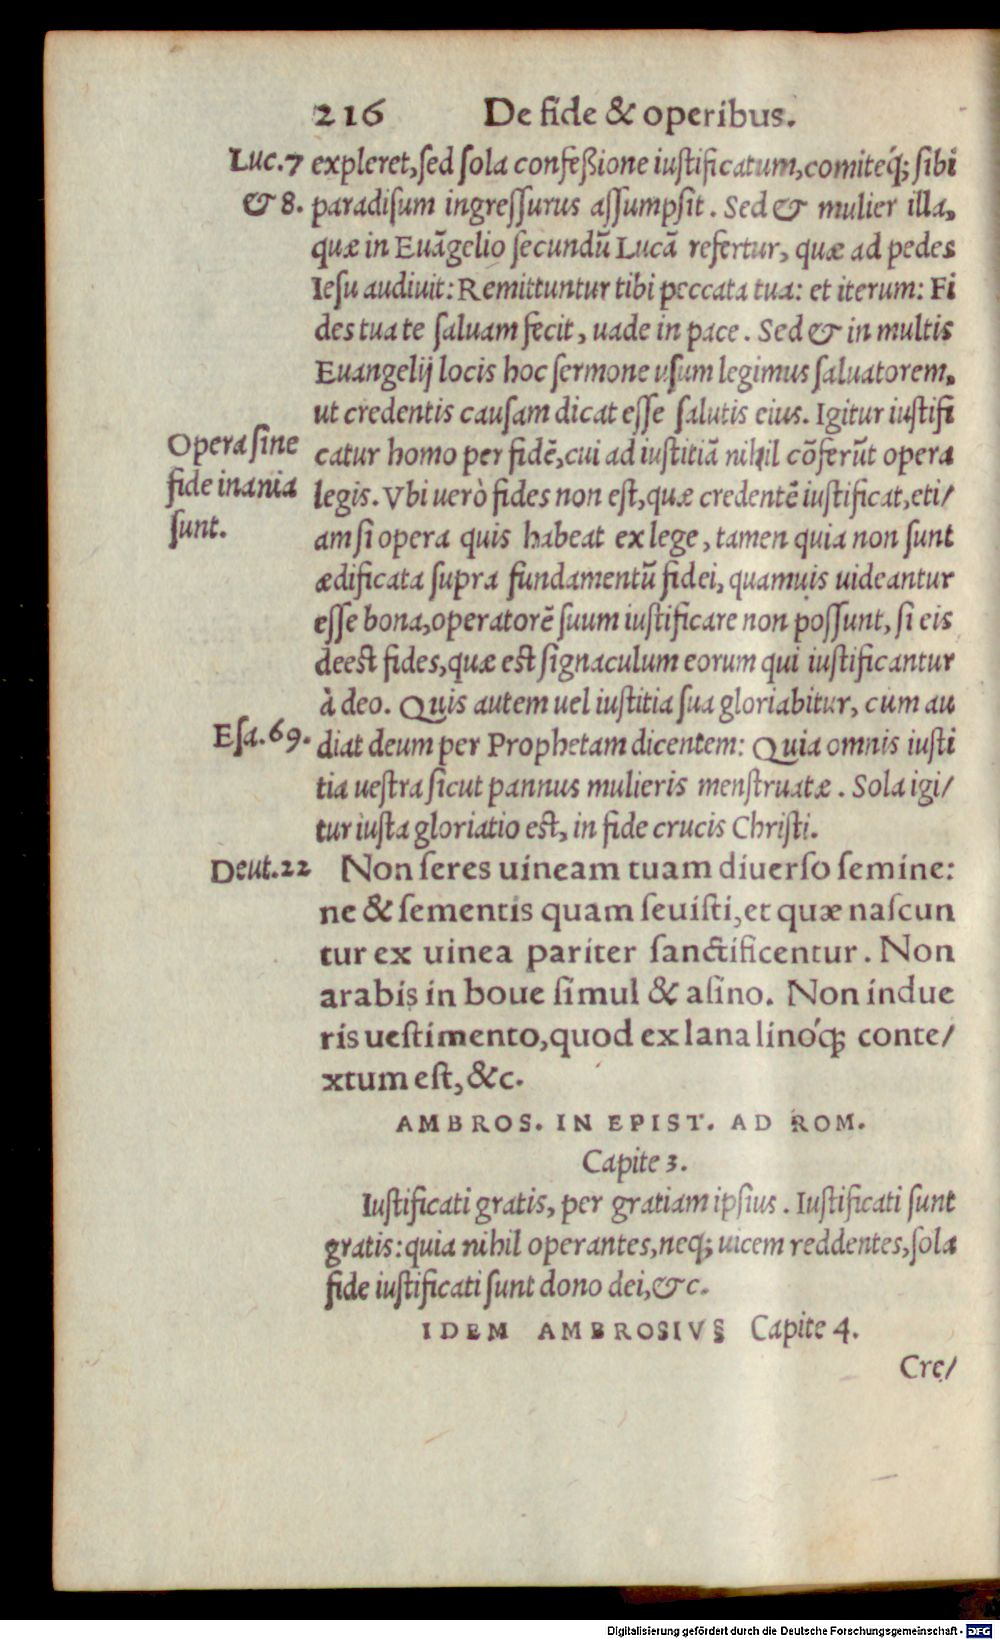 216 De fide & operibus.
Luc.7 expleret, ſed ſola confeßione iuſtificatum, comiteq́; ſibi
& 8. paradiſum ingreſſurus aſſumpſit. Sed & mulier illa,
quæ in Euãgelio ſecundũ Lucã refertur, quæ ad pedes
Ieſu audiuit: Remittuntur tibi peccata tua: et iterum: Fi
des tua te ſaluam fecit, uade in pace. Sed & in multis
Euangelij locis hoc ſermone uſum legimus ſaluatorem,
ut credentis cauſam dicat eſſe ſalutis eius. Igitur iuſtifi
Opera ſine
catur homo per fidẽ, cui ad iuſtitiã nihil cõferũt opera
fide inania
legis. Vbi uerò fides non eſt, quæ credentẽ iuſtificat, eti/
ſunt.
am ſi opera quis habeat ex lege, tamen quia non ſunt
ædificata ſupra fundamentũ fidei, quamuis uideantur
eſſe bona, operatorẽ ſuum iuſtificare non poſſunt, ſi eis
deeſt fides, quæ eſt ſignaculum eorum qui iuſtificantur
à deo. Quis autem uel iuſtitia ſua gloriabitur, cum au
Eſa.69. diat deum per Prophetam dicentem: Quia omnis iuſti
tia ueſtra ſicut pannus mulieris menſtruatæ. Sola igi/
tur iuſta gloriatio eſt, in fide crucis Chriſti.
Deut.22 Non ſeres uineam tuam diuerſo ſemine:
ne & ſementis quam ſeuiſti, et quæ naſcun
tur ex uinea pariter ſanctificentur. Non
arabis in boue ſimul & aſino. Non indue
ris ueſtimento, quod ex lana linóq; conte/
xtum eſt, &c.
AMBROS. IN EPIST. AD ROM.
Capite 3.
Iuſtificati gratis, per gratiam ipſius. Iuſtificati ſunt
gratis: quia nihil operantes, neq; uicem reddentes, ſola
fide iuſtificati ſunt dono dei, &c.
IDEM AMBROSIVS Capite 4.
Cre/
Digitalisierung gefördert durch die Deutsche Forschungsgemeinschaft - DFG